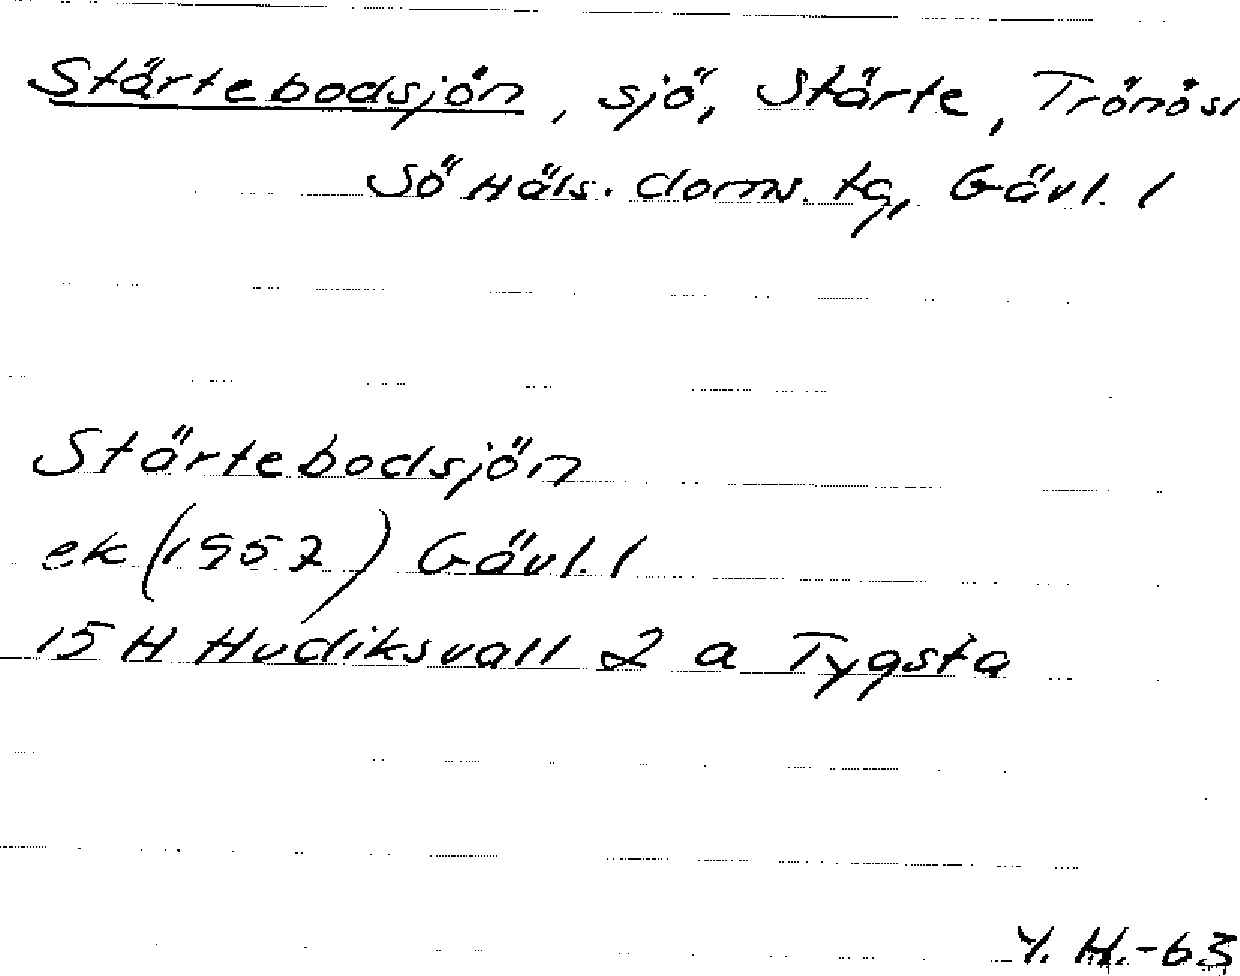 Stärtebodsjön, sjö, Stärte, Trönö sn
Sö Häls. doms. tg, Gävl. l
Stärtebodsjön
ek (1957) Gävl. l
15 H Hudiksvall 2 a Tygsta
Y. H.-63